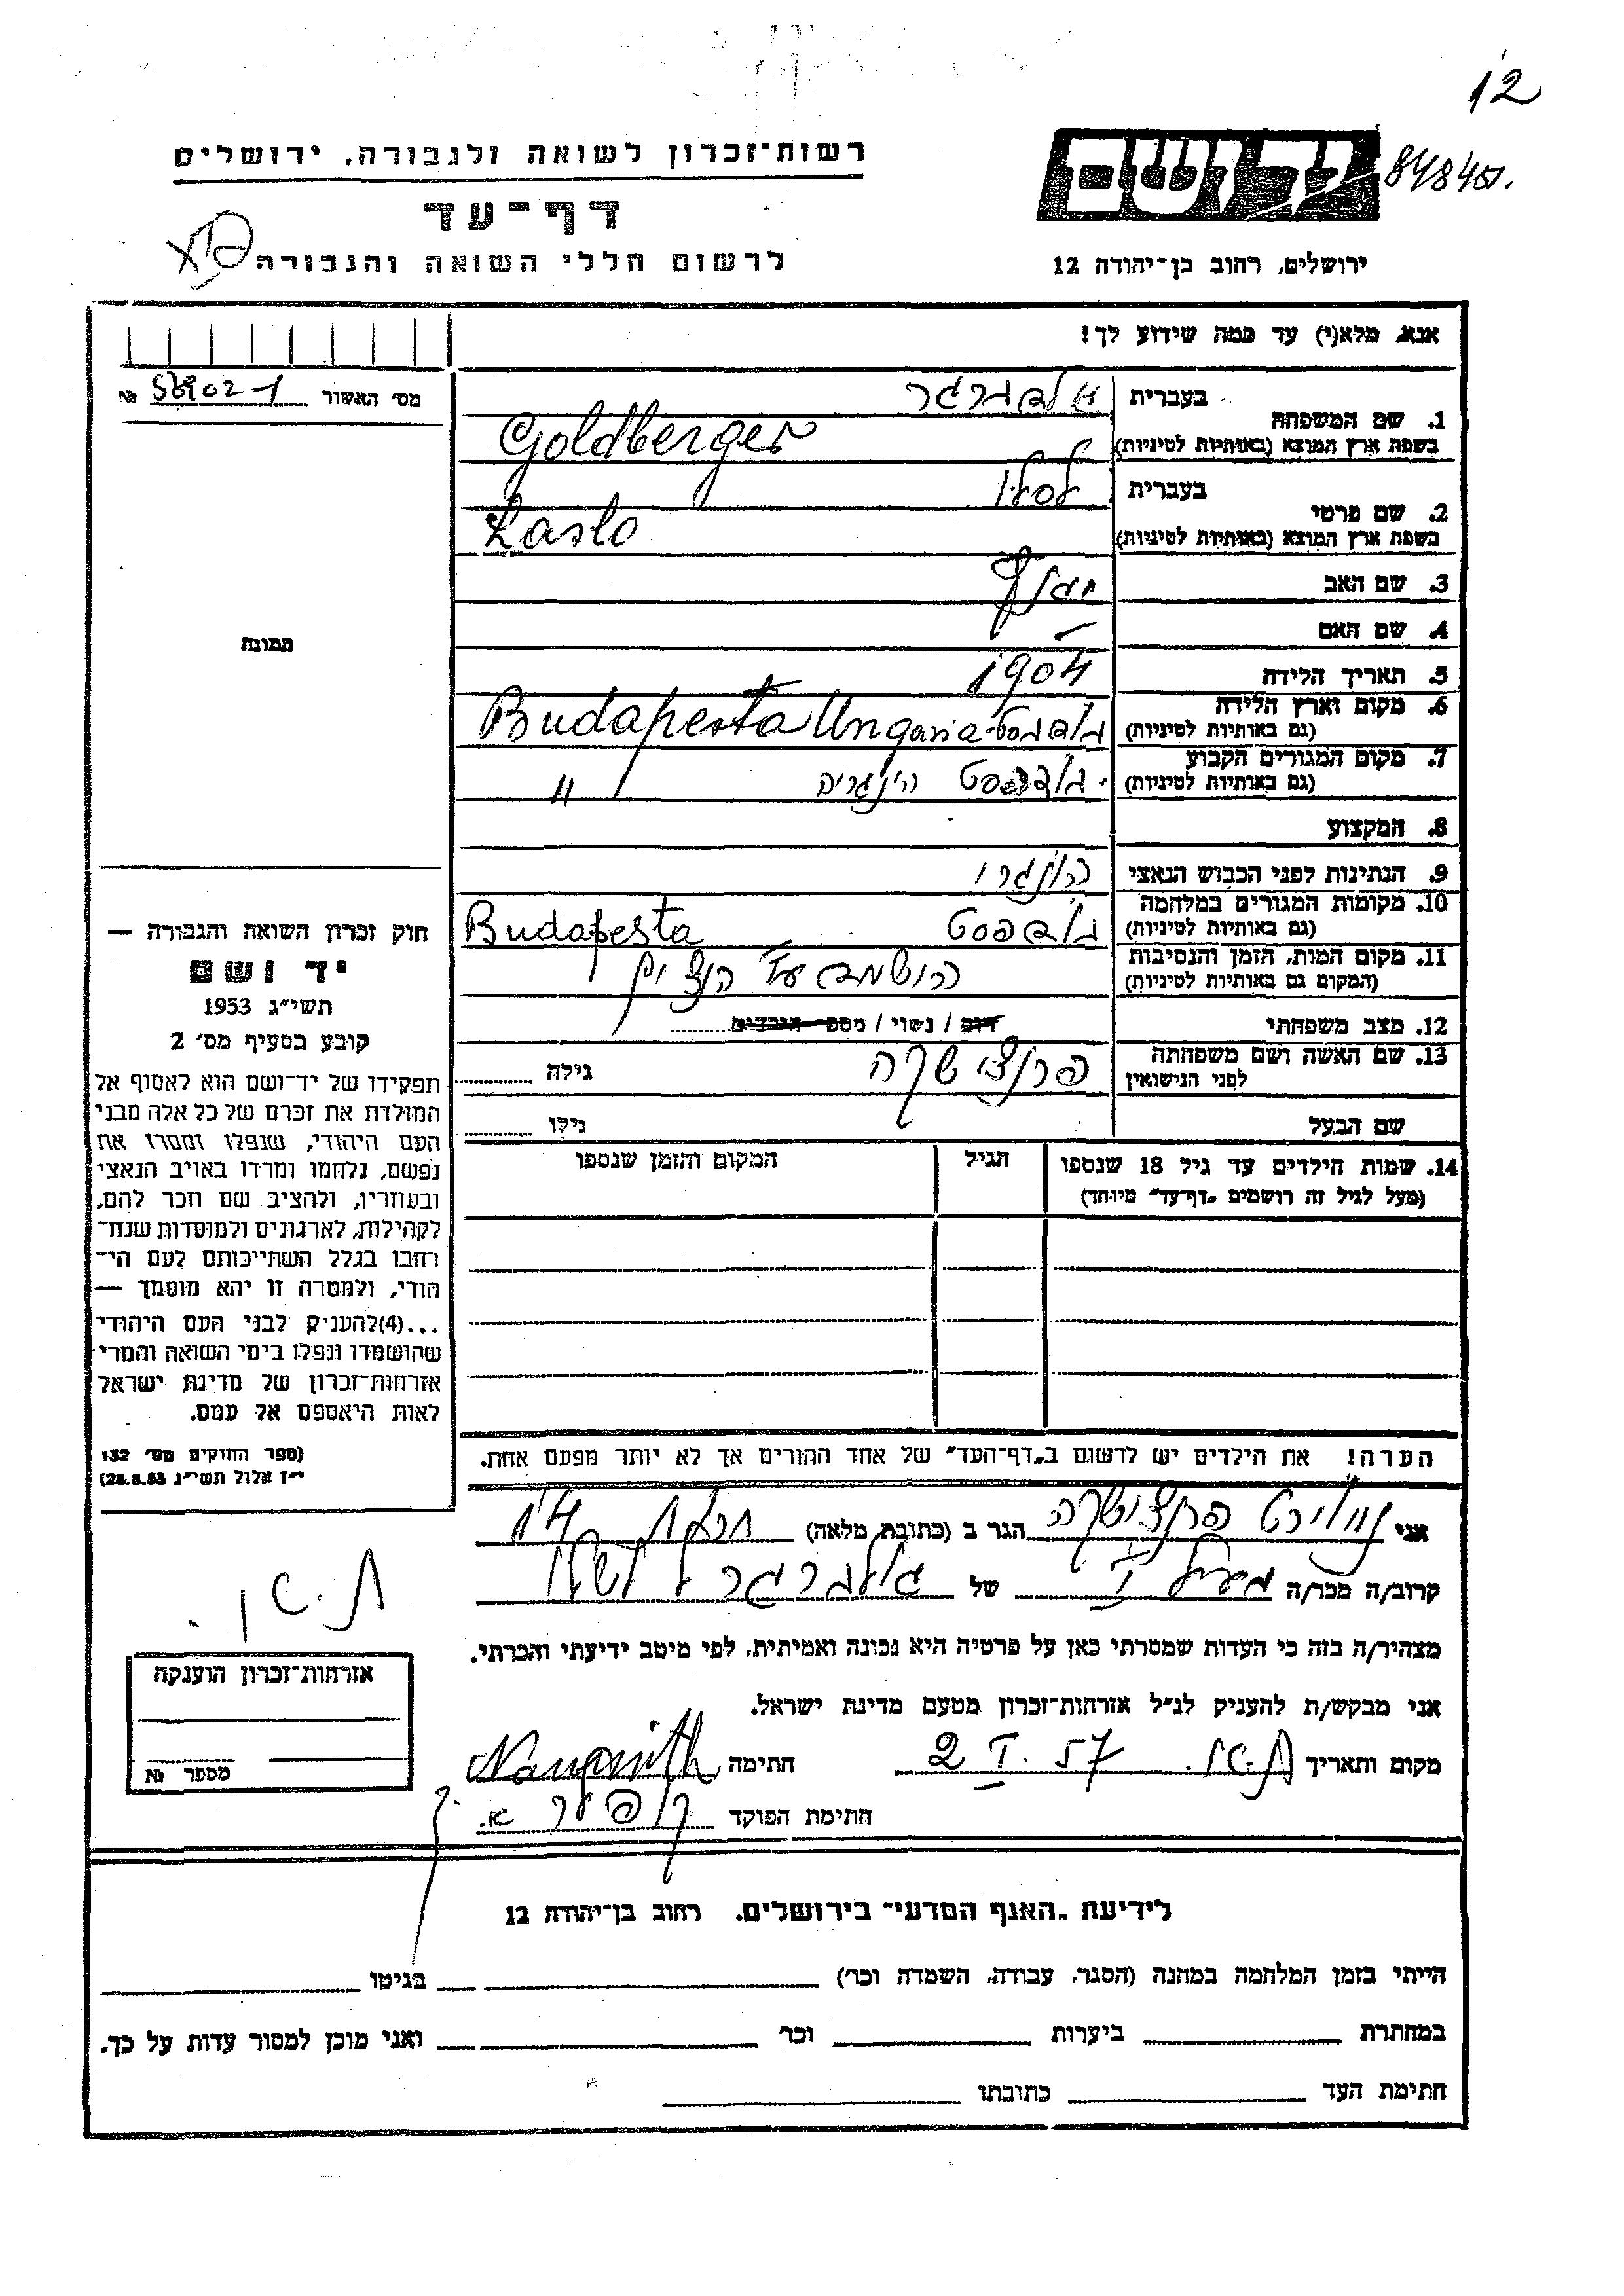 12
רשות־זכרון לשואה ולגבורה, ירושלים
דף־עד
לרשום חללי השואה והגבורה
ירושלים, רחוב בן־יהודה 12
אנא, מלא(י) עד כמה שידוע לך!
מס' האשור №
תמונה
1. שם המשפחה
בעברית
בשפת ארץ המוצא (באותיות לטיניות)
Goldberger
2. שם פרטי
בעברית לסלו
בשפת ארץ המוצא (באותיות לטיניות)
Laslo
3. שם האב
4. שם האם
5. תאריך הלידה 1904
6. מקום וארץ הלידה
(גם באותיות לטיניות)
בודפסט Budapesta Ungaria
7. מקום המגורים הקבוע
(גם באותיות לטיניות)
בודפסט הונגריה "
8. המקצוע
9. הנתינות לפני הכבוש הנאצי הונגרי
10. מקומות המגורים במלחמה
(גם באותיות לטיניות)
בודפסט Budapesta
11. מקום המות, הזמן והנסיבות
(המקום גם באותיות לטיניות)
הושמד ע"י הנצים
12. מצב משפחתי רווק / נשוי / מספר הילדים
13. שם האשה ושם משפחתה
לפני הנישואין
פרנצישקה גילה
שם הבעל גילו
14. שמות הילדים עד גיל 18 שנספו הגיל המקום והזמן שנספו
(מעל לגיל זה רושמים „דף־עד" מיוחד)
הערה! את הילדים יש לרשום ב„דף־העד" של אחד ההורים אך לא יותר מפעם אחת.
חוק זכרון השואה והגבורה —
יד ושם
תשי״ג 1953
קובע בסעיף מס' 2
תפקידו של יד־ושם הוא לאסוף אל
המולדת את זכרם של כל אלה מבני
העם היהודי, שנפלו ומסרו את
נפשם, נלחמו ומרדו באויב הנאצי
ובעוזריו, ולהציב שם וזכר להם,
לקהילות, לארגונים ולמוסדות שנח־
רחבו בגלל השתייכותם לעם הי־
הודי, ולמטרה זו יהא מוסמך —
...(4)להעניק לבני העם היהודי
שהושמדו ונפלו בימי השואה והמרי
אזרחות־זכרון של מדינת ישראל
לאות היאספם אל עמם.
(ספר החוקים מס' 132
י״ז אלול תשי״ג 28.8.53)
אני פרנצישקה הגר ב (כתובת מלאה)
קרוב/ה מכר/ה של
מצהיר/ה בזה כי העדות שמסרתי כאן על פרטיה היא נכונה ואמיתית, לפי מיטב ידיעתי והכרתי.
אני מבקש/ת להעניק לנ״ל אזרחות־זכרון מטעם מדינת ישראל.
מקום ותאריך 2 I. 57 חתימה
חתימת הפוקד
אזרחות־זכרון הוענקה
מספר №
לידיעת „האגף המדעי" בירושלים, רחוב בן־יהודה 12
הייתי בזמן המלחמה במחנה (הסגר, עבודה, השמדה וכו') בגיטו
במחתרת ביערות וכו' ואני מוכן למסור עדות על כך.
חתימת העד כתובתו